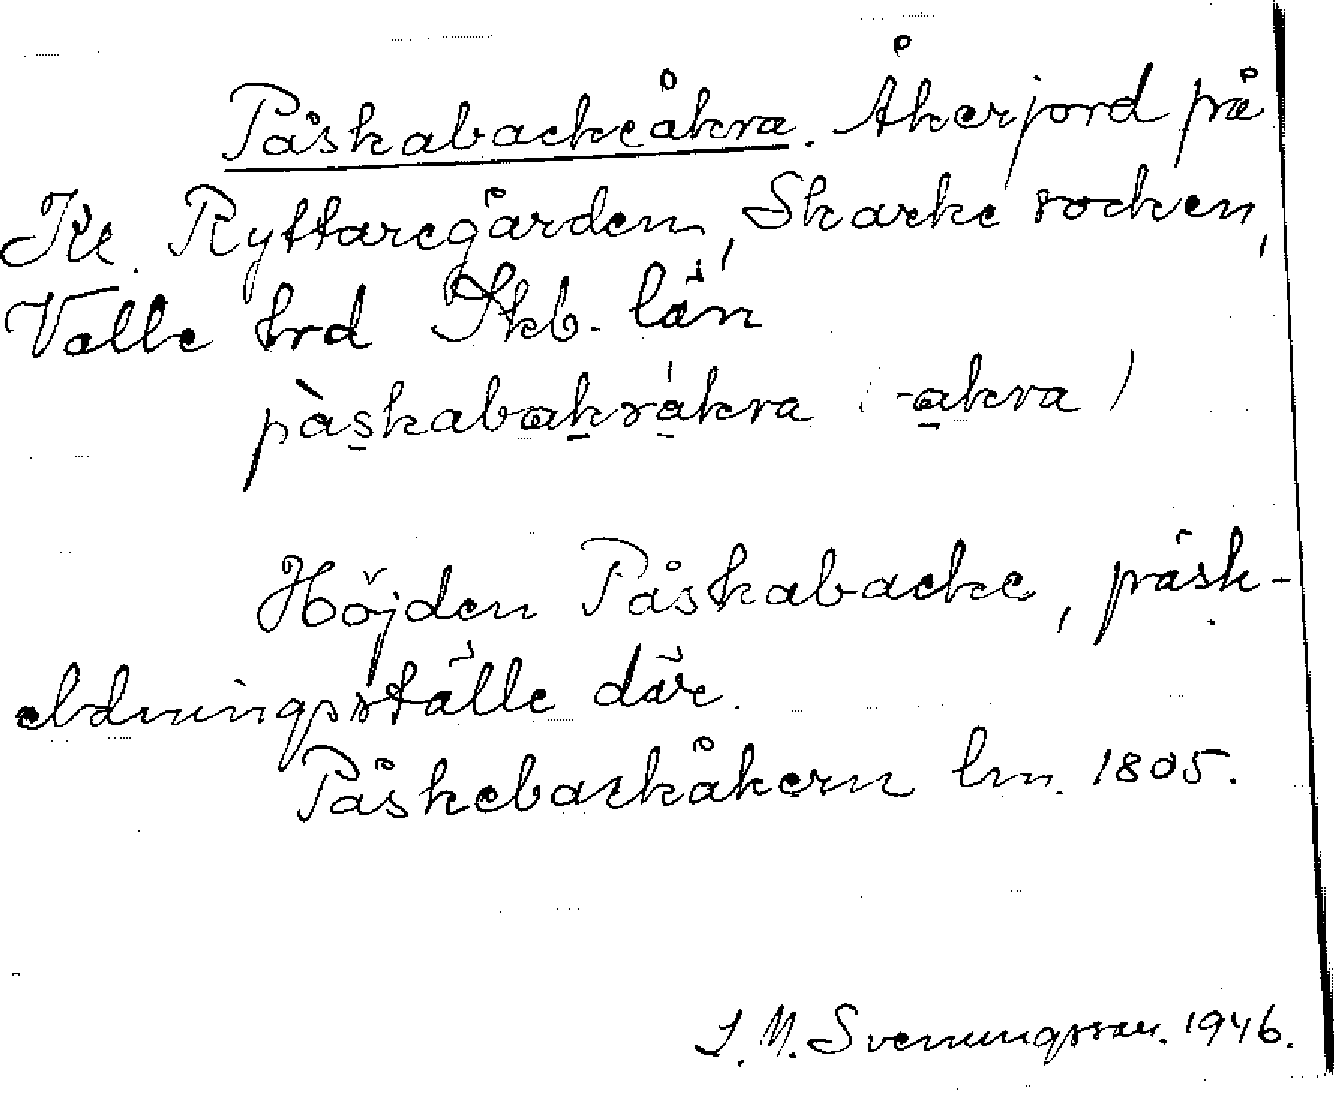 Påskabackeåkra. Åkerjord på
Kl. Ryttaregården, Skarke socken,
Valle hrd Skb. län
pàskabakråkra (-akra)
Höjden Påskabacke, påsk-
eldningsställe där.
Påskebackåkern lm. 1805.
J. M. Svenungsson. 1946.